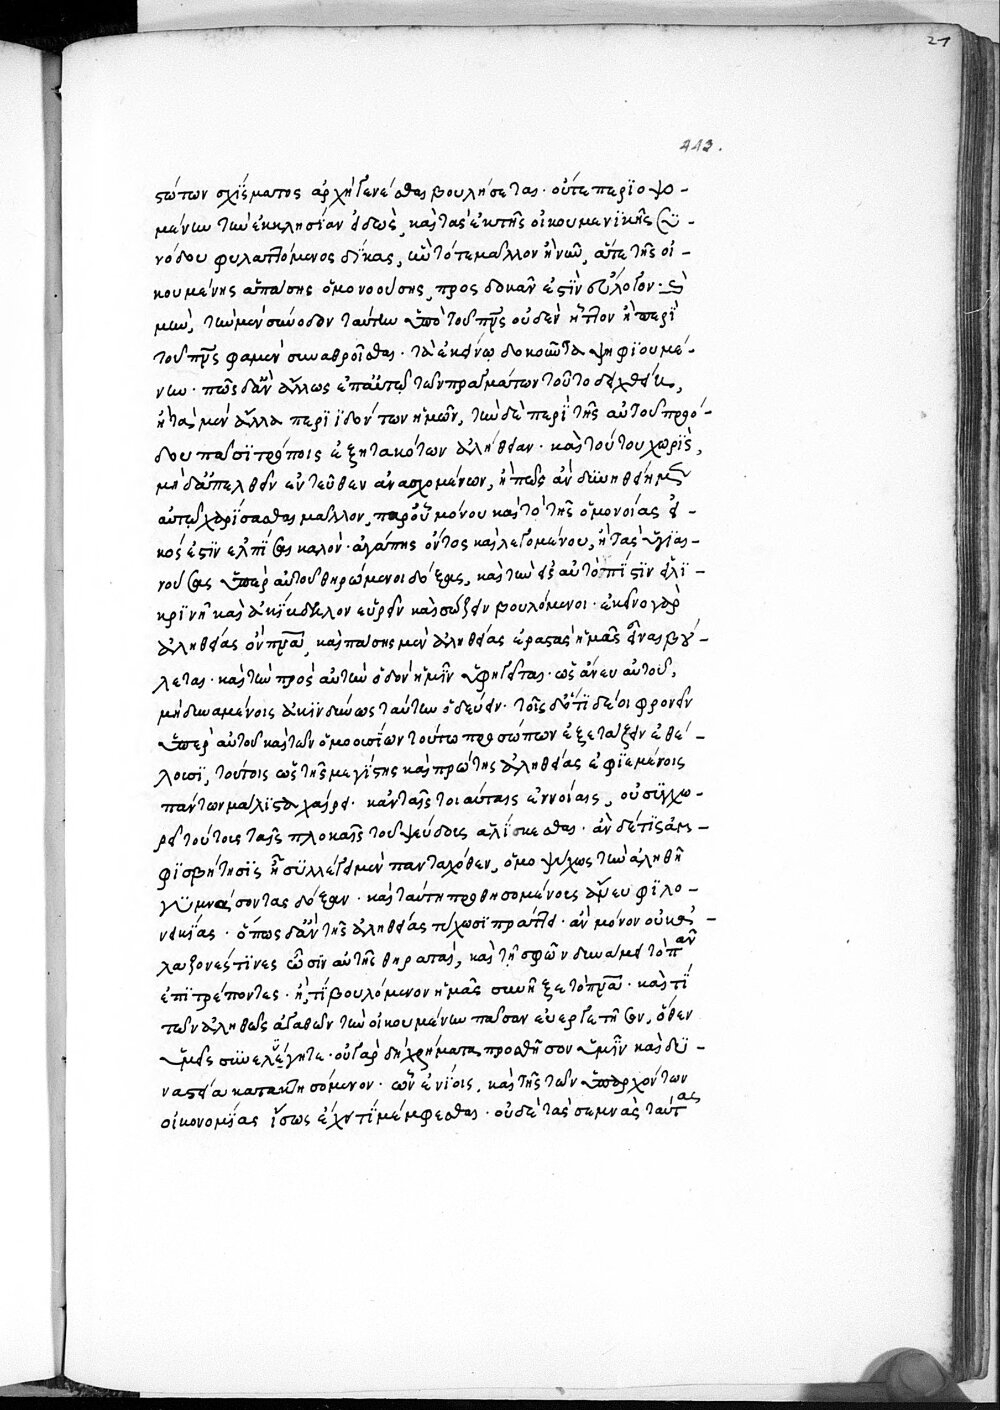 21
443.
στώτων σχίσματος ἀρχὴ γενέσθαι βουλήσεται. οὔτε περιοψο-
μένων τὴν ἐκκλησίαν
καὶ τὰς ἐκ τῆς οἰκουμενικῆς συ-
νόδου φυλαττόμενος δίκας, μᾶλλον ἢ νῦν, ἅτε τῆς οἰ-
κουμένης ἁπάσης ὁμονοούσης, πρὸς
μὴν, τὴν μὲν σύνοδον ταύτην ὑπὸ τοῦ πνς οὐδὲν ἧττον ἢ περὶ
τοῦ πνς φαμὲν συναθροῖσθαι. τὰ ἐκείνῳ δοκοῦντα ψηφιουμέ-
νην. πῶς δ' ἂν ἄλλως ἐπ' αὐτῷ τῶν πραγμάτων τοῦτο δειχθείη,
ἢ τὰ μὲν ἄλλα περιϊδόντων ἡμῶν, τὴν δὲ περὶ τῆς αὐτοῦ προό-
δου πᾶσι τρόποις ἐξητακότων ἀλήθειαν. καὶ τούτου χωρὶς,
μηδ' ἀπελθεῖν ἐντεῦθεν ἀνασχομένων, ἢ πῶς ἂν δυνηθείημεν
αὐτῷ χαρίσασθαι μᾶλλον, παρ' οὗ μόνου καὶ τὸ τῆς ὁμονοίας εἰ-
κός ἐστιν ἐλπίσαι καλόν. ἀγάπης ὄντος καὶ λεγομένου, ἢ τὰς ὑγιαι-
νούσας ὑπὲρ αὐτοῦ θηρώμενοι δόξας, καὶ τὴν εἰς αὐτὸ πίστιν εἰλι-
κρινῆ καὶ ἀκίβδηλον εὑρεῖν καὶ σώζειν βουλόμενοι. ἐκεῖνο γὰρ
ἀληθείας ὂν πνα, καὶ πάσης μὲν ἀληθείας ἐραστὰς ἡμᾶς εἶναι βού-
λεται. καὶ τὴν πρὸς αὐτὴν ὁδὸν ἡμῖν ὑφηγεῖται. ὡς ἄνευ αὐτοῦ,
μὴ δυναμένοις ἀκινδύνως ταύτην ὁδεύειν. τοῖς δ' ὅ,τι δέοι φρονεῖν
ὑπὲρ αὐτοῦ καὶ τῶν ὁμοουσίων τούτῳ προσώπων ἐξετάζειν ἐθέ-
λουσι, τούτοις ὡς τῆς μεγίστης καὶ πρώτης ἀληθείας ἐφιεμένοις
πάντων μάλιστα χαίρει. κἀν ταῖς τοιαύταις ἐννοίαις, οὐ συγχω-
ρεῖ τούτοις ταῖς πλοκαῖς τοῦ ψεύδους ἁλίσκεσθαι. ἂν δέ τις ἀμ-
φισβήτησις ᾖ συλλέγει μὲν πανταχόθεν, ὁμοψύχως τὴν ἀληθῆ
γυμνάσοντας δόξαν. καὶ ταύτῃ προθησομένοις ἄνευ φιλο-
νεικίας. ὅπως δ' ἂν τῆς ἀληθείας τύχωσι πράττει. ἂν μόνον οὐκ ἀ-
λαζονές τινες ὦσιν αὐτῆς θηραταὶ, καὶ τῇ σφῶν δυνάμει τὸ πᾶν
ἐπιτρέποντες. ἢ,τί βουλόμενον ἡμᾶς συνῆξε τὸ πνα. καὶ τί
τῶν ἀληθῶς ἀγαθῶν τὴν οἰκουμένην πᾶσαν εὐεργετῆσον, ὅθεν
ὑμεῖς συνελέγητε. οὐ γὰρ δὴ χρήματα προσθῆσον ὑμῖν καὶ δυ-
ναστείαν κατακτησόμενον. ὧν ἐνίοις, καὶ τῆς τῶν ὑπαρχόντων
οἰκονομίας ἴσως ἔχει τι μέμφεσθαι. οὐδὲ τὰς σεμνὰς ταύτας